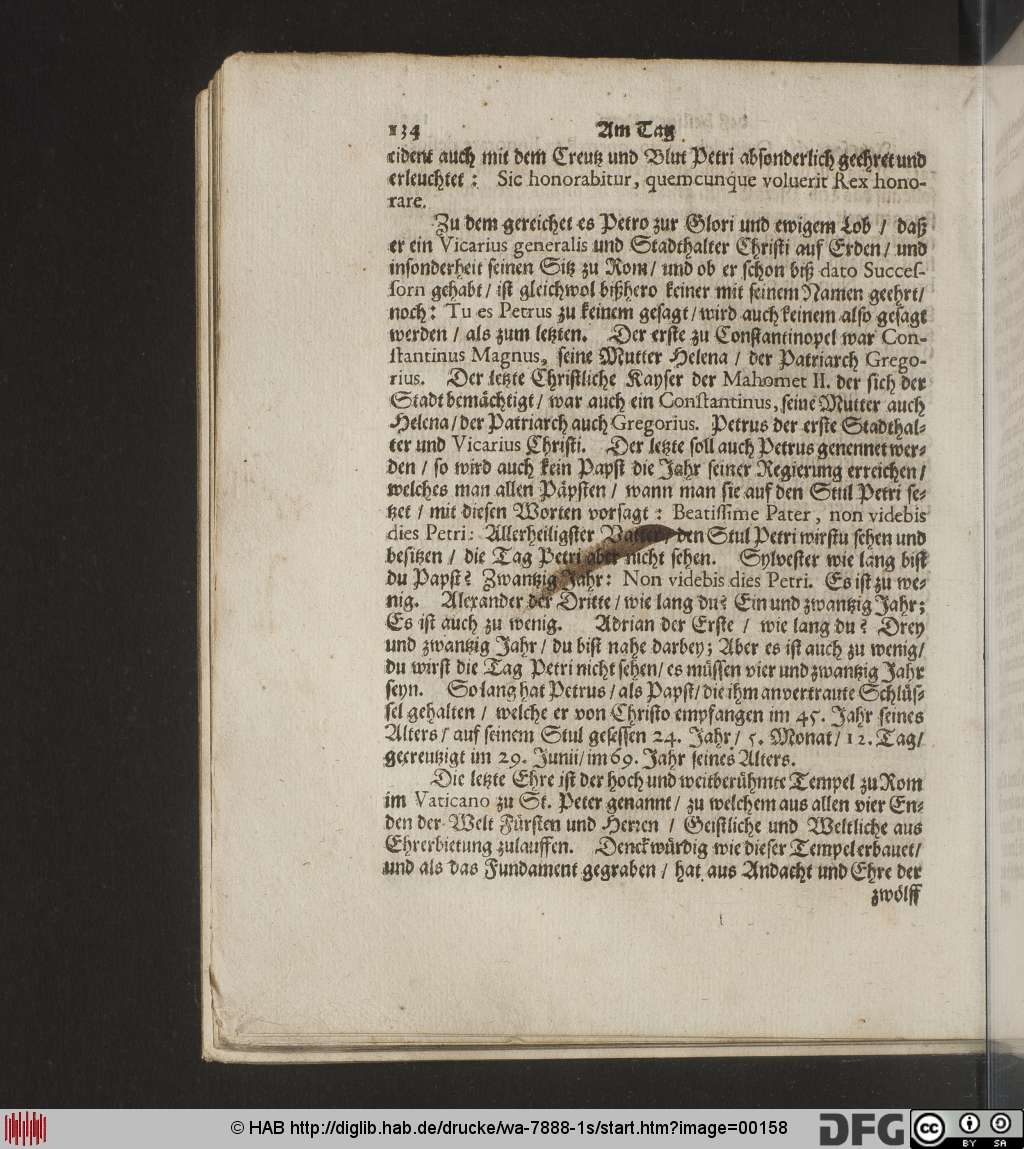 134 Am Tag
cident auch mit dem Creutz und Blut Petri absonderlich geehret und
erleuchtet: Sic honorabitur, quemcunque voluerit Rex hono-
rare.
Zu dem gereichet es Petro zur Glori und ewigem Lob / daß
er ein Vicarius generalis und Stadthalter Christi auf Erden / und
insonderheit seinen Sitz zu Rom / und ob er schon biß dato Succes-
sorn gehabt / ist gleichwol bißhero keiner mit seinem Namen geehrt /
noch: Tu es Petrus zu keinem gesagt / wird auch keinem also gesagt
werden / als zum letzten. Der erste zu Constantinopel war Con-
stantinus Magnus, seine Mutter Helena / der Patriarch Grego-
rius. Der letzte Christliche Kayser der Mahomet II. der sich der
Stadt bemächtigt / war auch ein Constantinus, seine Mutter auch
Helena / der Patriarch auch Gregorius. Petrus der erste Stadthal-
ter und Vicarius Christi. Der letzte soll auch Petrus genennet wer-
den / so wird auch kein Papst die Jahr seiner Regierung erreichen /
welches man allen Päpsten / wann man sie auf den Stul Petri se-
tzet / mit diesen Worten vorsagt: Beatissime Pater, non videbis
dies Petri: Allerheiligster Vatter / den Stul Petri wirstu sehen und
besitzen / die Tag Petri aber nicht sehen. Sylvester wie lang bist
du Papst? Zwantzig Jahr: Non videbis dies Petri. Es ist zu we-
nig. Alexander der Dritte / wie lang du? Ein und zwantzig Jahr;
Es ist auch zu wenig. Adrian der Erste / wie lang du? Drey
und zwantzig Jahr / du bist nahe darbey; Aber es ist auch zu wenig /
du wirst die Tag Petri nicht sehen / es müssen vier und zwantzig Jahr
seyn. So lang hat Petrus / als Papst / die ihm anvertraute Schlüs-
sel gehalten / welche er von Christo empfangen im 45. Jahr seines
Alters / auf seinem Stul gesessen 24. Jahr / 5. Monat / 12. Tag /
gecreutzigt im 29. Junii / im 69. Jahr seines Alters.
Die letzte Ehre ist der hoch und weitberühmte Tempel zu Rom
im Vaticano zu St. Peter genannt / zu welchem aus allen vier En-
den der Welt Fürsten und Herren / Geistliche und Weltliche aus
Ehrerbietung zulauffen. Denckwürdig wie dieser Tempel erbauet /
und als das Fundament gegraben / hat aus Andacht und Ehre der
zwölff
© HAB http://diglib.hab.de/drucke/wa-7888-1s/start.htm?image=00158
DFG
cc
BY SA